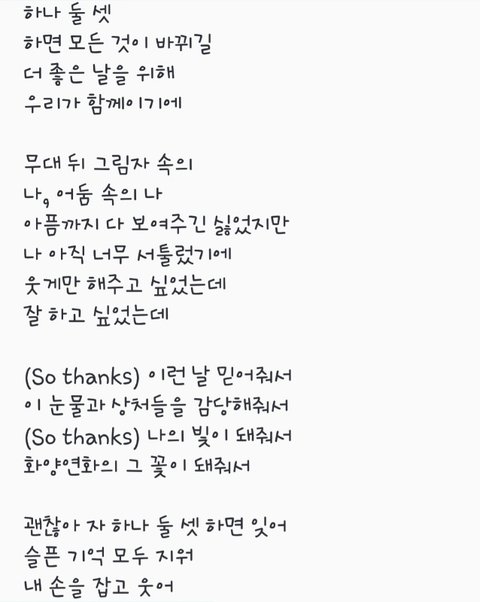 하나 둘 셋
하면 모든 것이 바뀌길
더 좋은 날을 위해
우리가 함께이기에
무대 뒤 그림자 속의
나, 어둠 속의 나
아픔까지 다 보여주긴 싫었지만
나 아직 너무 서툴렀기에
웃게만 해주고 싶었는데
잘 하고 싶었는데
(So thanks) 이런 날 믿어줘서
이 눈물과 상처들을 감당해줘서
(So thanks) 나의 빛이 돼줘서
화양연화의 그 꽃이 돼줘서
괜찮아 자 하나 둘 셋 하면 잊어
슬픈 기억 모두 지워
내 손을 잡고 웃어